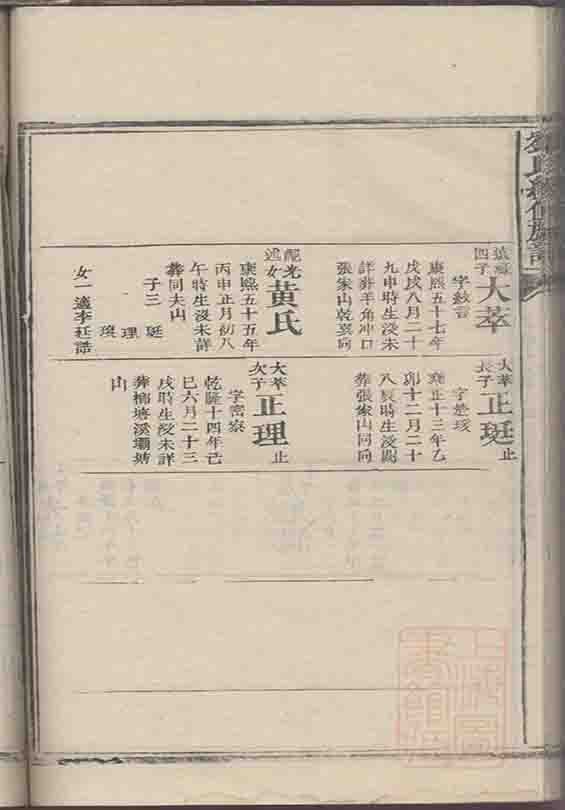 遠
四子
大萃
字紋言
康熙五十七年
戊戌八月二十
九申時生沒未
詳葬羊角冲口
張家山乾巽向
配光
述女
黃氏
康熙五十五年
丙申正月初八
午時生沒未詳
葬同夫山
子三
珽 理 
女一適李廷
大萃
長子
正珽
止
字
雍正十三年乙
卯十二月二十
八辰時生沒闕
葬張家山同向
大萃
次子
正理
止
字密寮
乾隆十四年己
巳六月二十三
戌時生沒未詳
葬楠塘溪壩塘
山
氏修族譜
上海圖
書館藏